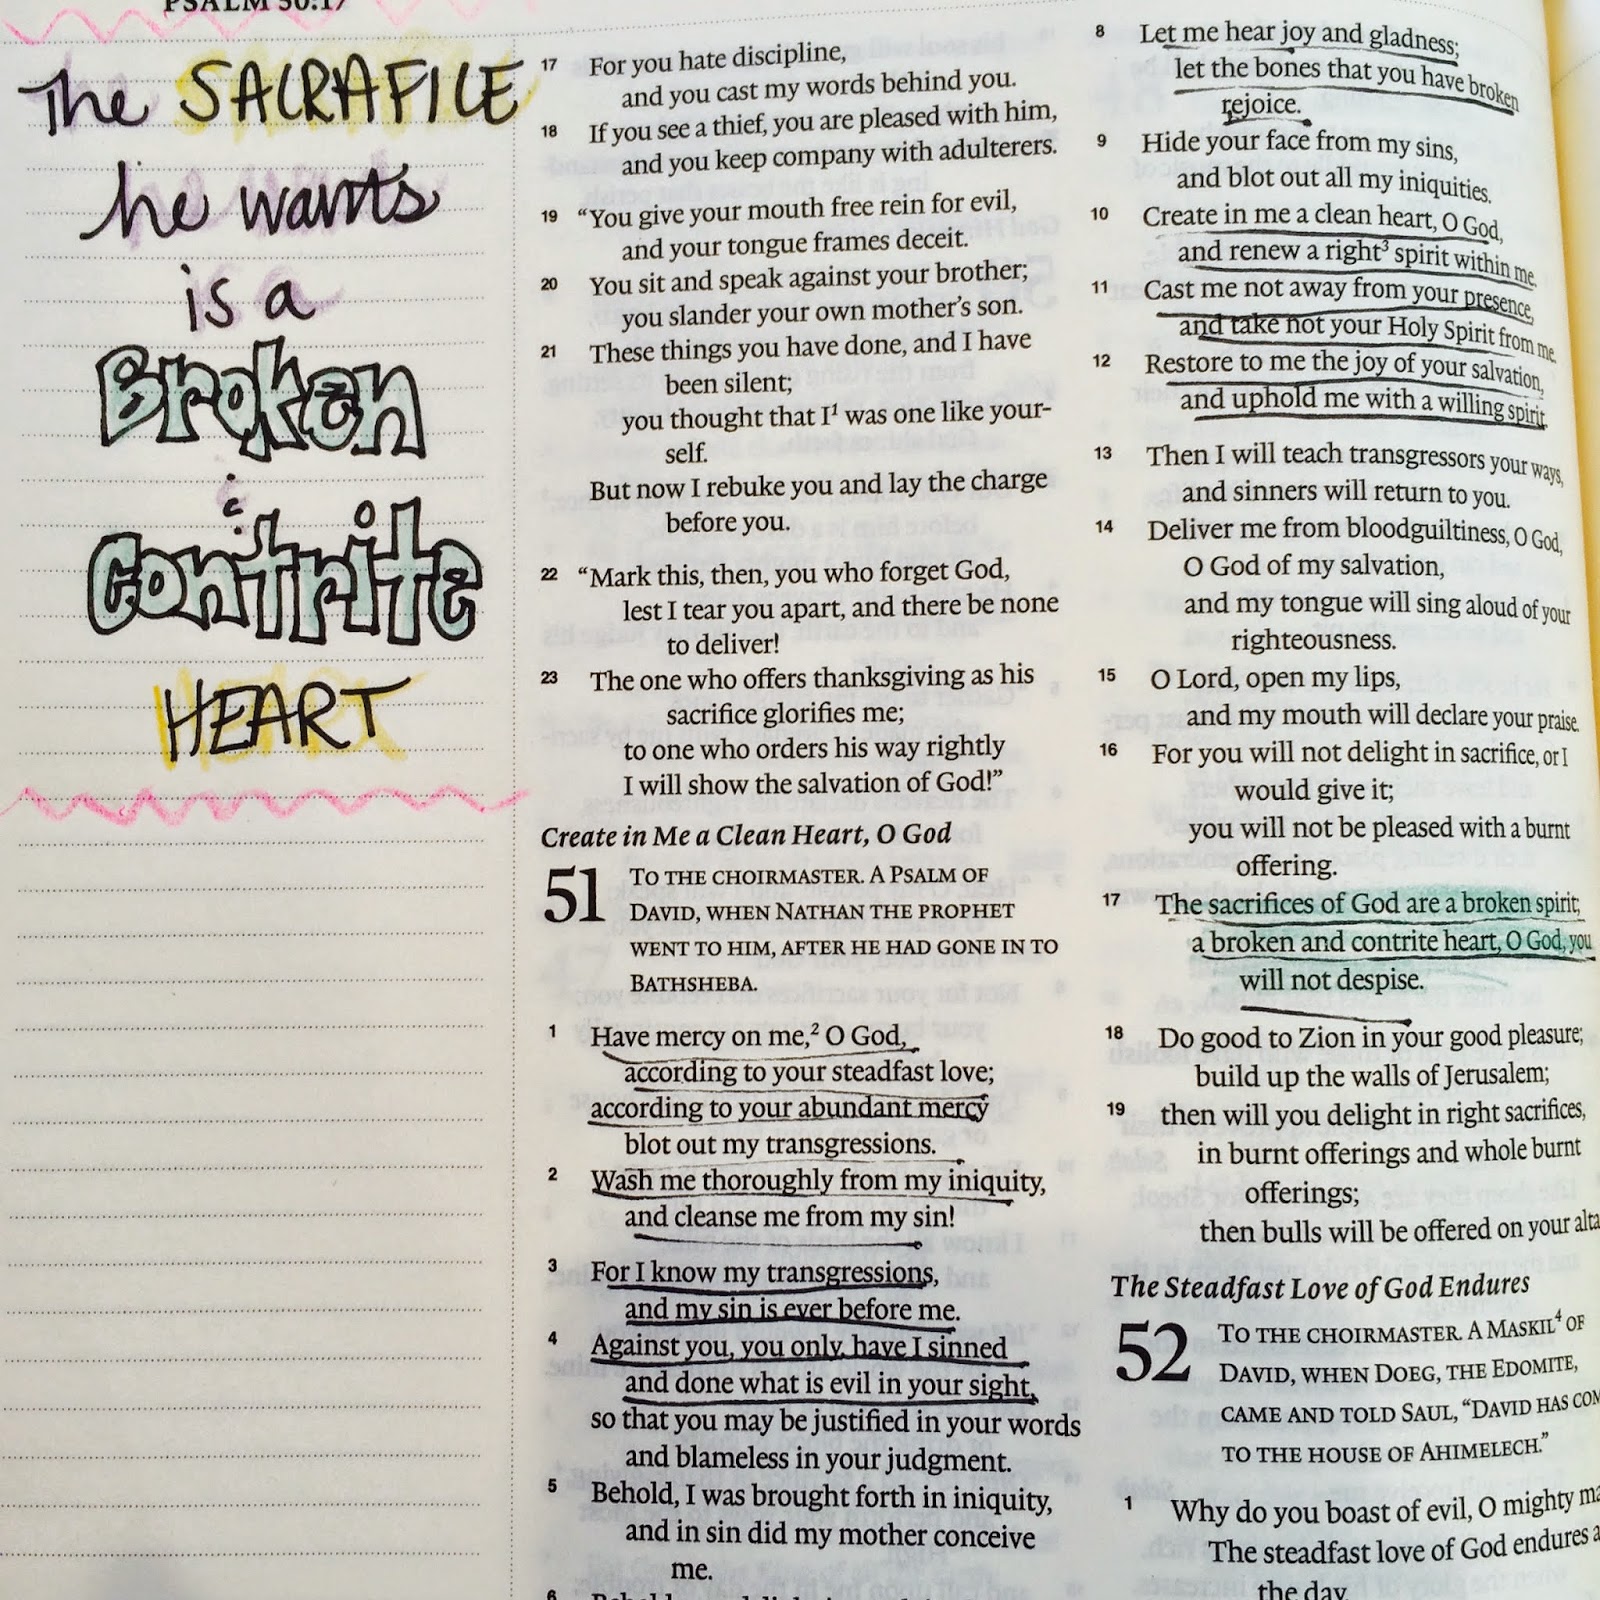 PSALM 50:17
The SACRAFICE
he wants
is a
Broken
&
Contrite
HEART
17 For you hate discipline,
and you cast my words behind you.
18 If you see a thief, you are pleased with him,
and you keep company with adulterers.
19 “You give your mouth free rein for evil,
and your tongue frames deceit.
20 You sit and speak against your brother;
you slander your own mother’s son.
21 These things you have done, and I have
been silent;
you thought that I¹ was one like your-
self.
But now I rebuke you and lay the charge
before you.
22 “Mark this, then, you who forget God,
lest I tear you apart, and there be none
to deliver!
23 The one who offers thanksgiving as his
sacrifice glorifies me;
to one who orders his way rightly
I will show the salvation of God!”
Create in Me a Clean Heart, O God
51 TO THE CHOIRMASTER. A PSALM OF
DAVID, WHEN NATHAN THE PROPHET
WENT TO HIM, AFTER HE HAD GONE IN TO
BATHSHEBA.
1 Have mercy on me,² O God,
according to your steadfast love;
according to your abundant mercy
blot out my transgressions.
2 Wash me thoroughly from my iniquity,
and cleanse me from my sin!
3 For I know my transgressions,
and my sin is ever before me.
4 Against you, you only, have I sinned
and done what is evil in your sight,
so that you may be justified in your words
and blameless in your judgment.
5 Behold, I was brought forth in iniquity,
and in sin did my mother conceive
me.
8 Let me hear joy and gladness;
let the bones that you have broken
rejoice.
9 Hide your face from my sins,
and blot out all my iniquities.
10 Create in me a clean heart, O God,
and renew a right³ spirit within me.
11 Cast me not away from your presence,
and take not your Holy Spirit from me.
12 Restore to me the joy of your salvation,
and uphold me with a willing spirit.
13 Then I will teach transgressors your ways,
and sinners will return to you.
14 Deliver me from bloodguiltiness, O God,
O God of my salvation,
and my tongue will sing aloud of your
righteousness.
15 O Lord, open my lips,
and my mouth will declare your praise.
16 For you will not delight in sacrifice, or I
would give it;
you will not be pleased with a burnt
offering.
17 The sacrifices of God are a broken spirit;
a broken and contrite heart, O God, you
will not despise.
18 Do good to Zion in your good pleasure;
build up the walls of Jerusalem;
19 then will you delight in right sacrifices,
in burnt offerings and whole burnt
offerings;
then bulls will be offered on your alta
The Steadfast Love of God Endures
52 TO THE CHOIRMASTER. A MASKIL⁴ OF
DAVID, WHEN DOEG, THE EDOMITE,
CAME AND TOLD SAUL, “DAVID HAS COM
TO THE HOUSE OF AHIMELECH.”
1 Why do you boast of evil, O mighty ma
The steadfast love of God endures a
the day.